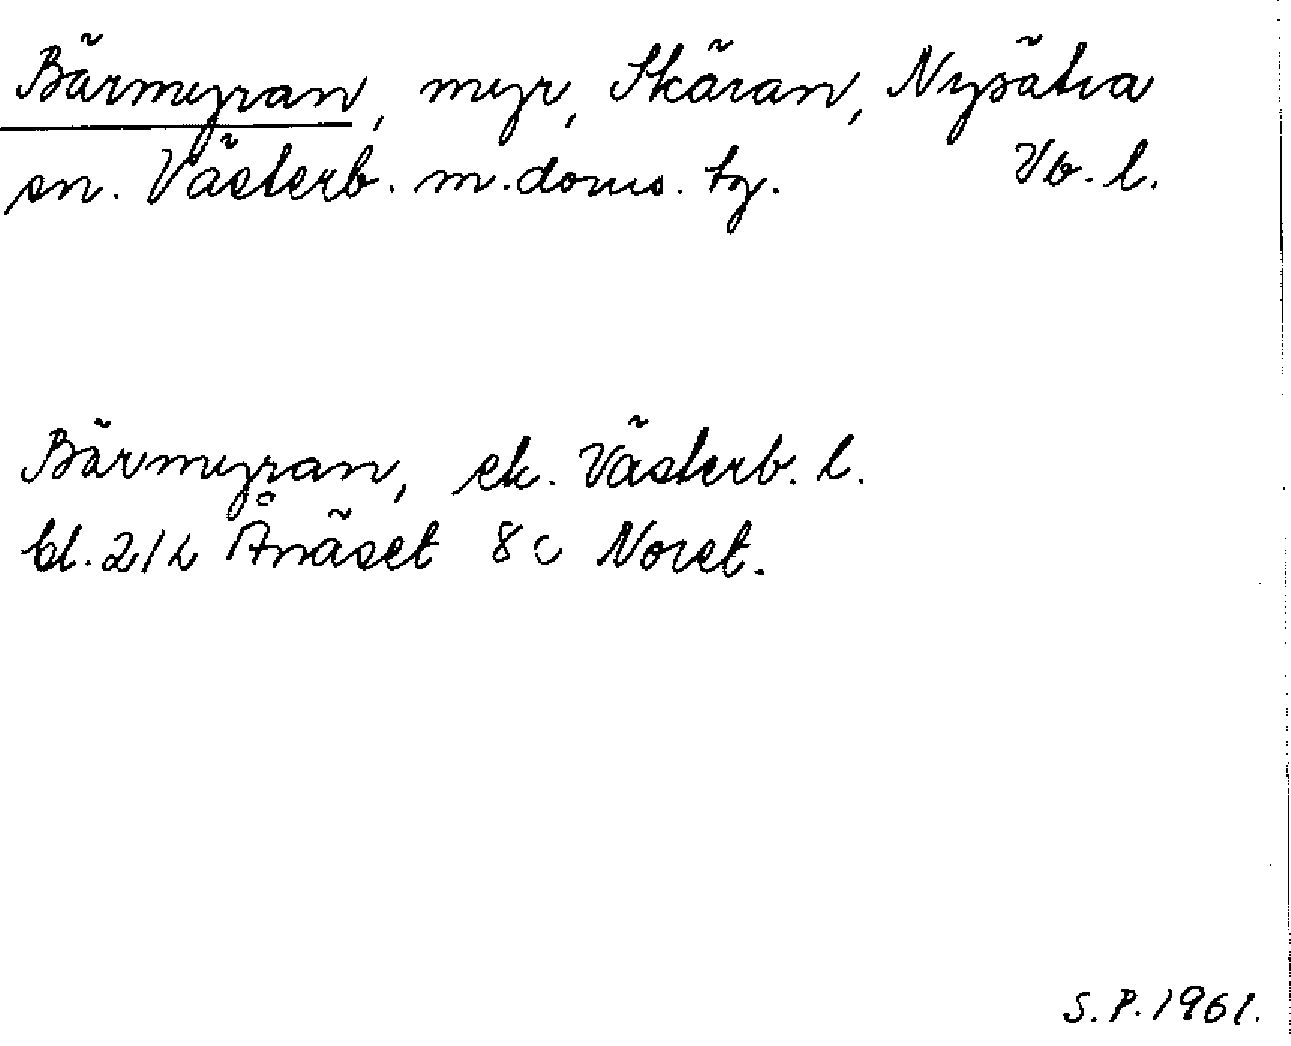 Bärmyran, myr, Skäran, Nysätra
sn. Västerb. m. doms. tg. Vb. l.
Bärmyran, ek. Västerb. l.
bl. 21 L Ånäset 8 c Noret.
S. P. 1961.